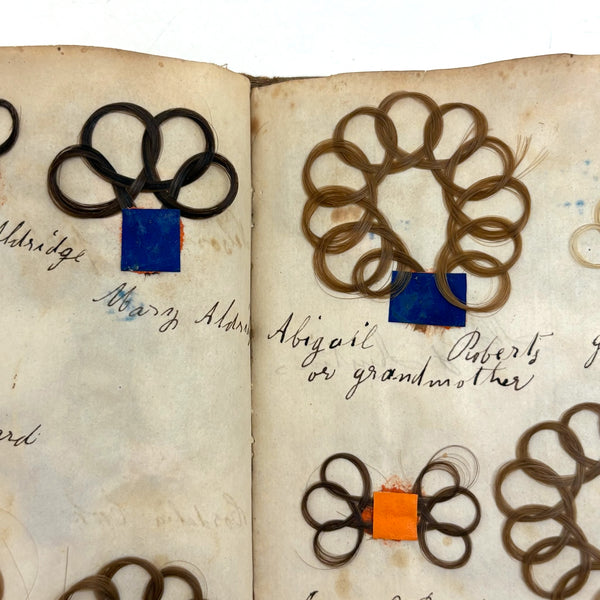 Aldridge
Mary Aldri
ard
Abigail Roberts
or grandmother